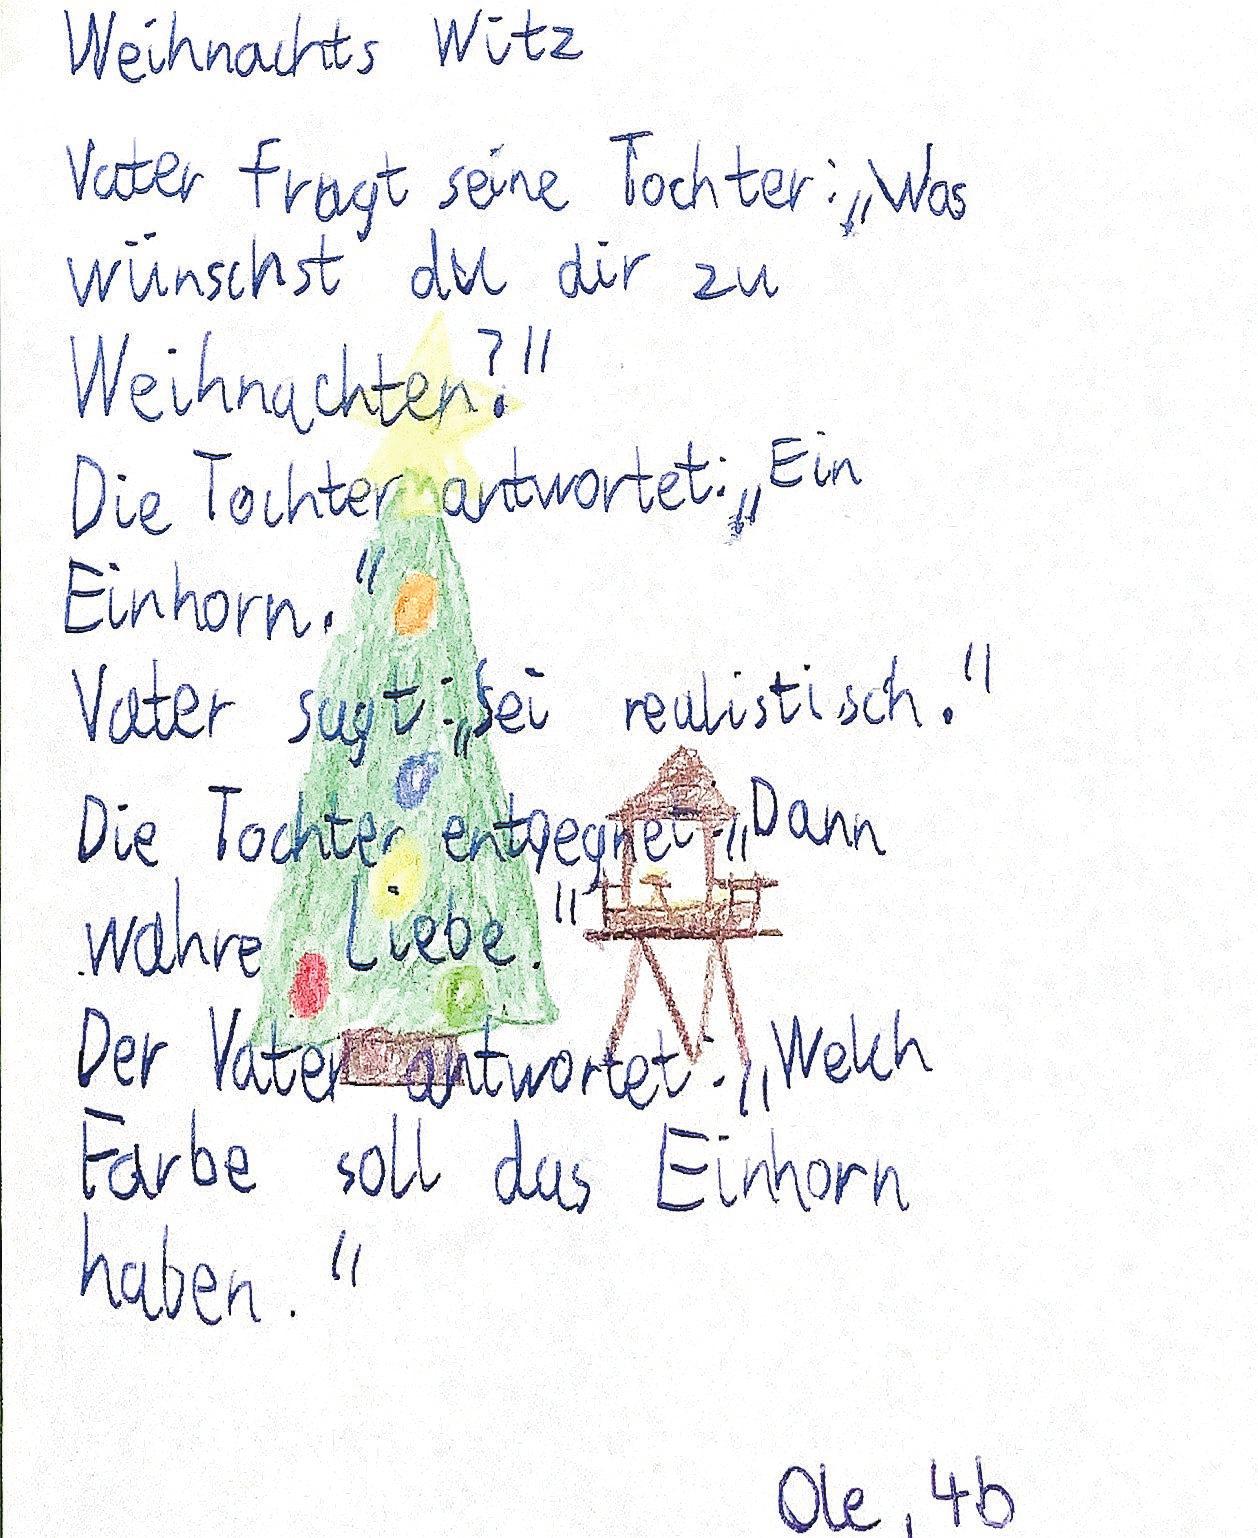 Weihnachts Witz
Vater fragt seine Tochter: „Was
wünschst du dir zu
Weihnachten?"
Die Tochter antwortet: „Ein
Einhorn."
Vater sagt: „Sei realistisch."
Die Tochter entgegnet: „Dann
wahre Liebe."
Der Vater antwortet: „Welch
Farbe soll das Einhorn
haben."
Ole, 4b